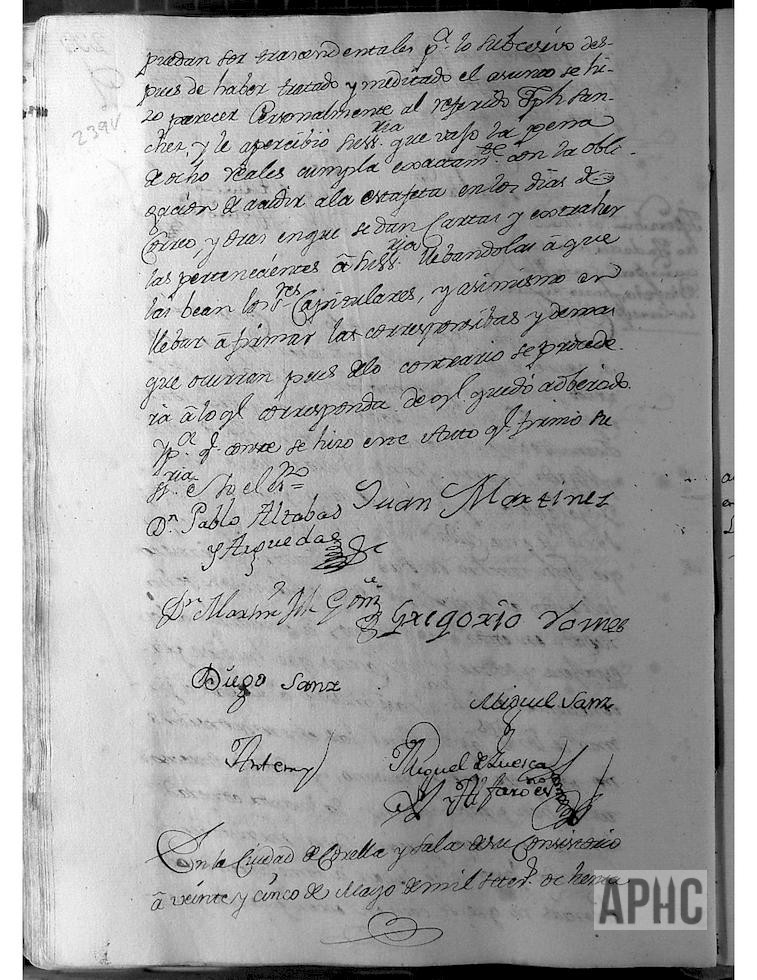 239V
puedan ser trascendentales pª. lo subcesivo des-
pues de haber tratado y meditado el asunto se hi-
zo parecer Personalmente al referido Jph San-
chez, y le apercibio Su Sª.ria que vajo la pena
de ocho reales cumpla exactamte. con la obli-
gacion de acudir ala estafeta en los dias de
Correo, y otras en que se dan Cartas y extraher
las pertenecientes â Su Sª.ria llebandolas â que
las bean los Sres. Capitulares, y asimismo en
llebar â firmar las correspondibas y demas
que ocurran pues delo contrario se procede-
ria â lo ql. corresponda de ql. quedó adbertido.
Y pª. qe. conste se hizo este Auto ql. firmó Su
Sria. è Yo el Srio=
Dn. Pablo Altabas
y Aiguedas
Juan Martinez
Dn. Martin M. Goñi
Gregorio Yomes
Diego Sanz
Miguel Sanz
Antemy
Miguel de Luesca
y Alfaro esno
En la Ciudad de Corella y Sala de su Consistorio
â veinte y cinco de Mayo de mil setezs. ochenta
APHC